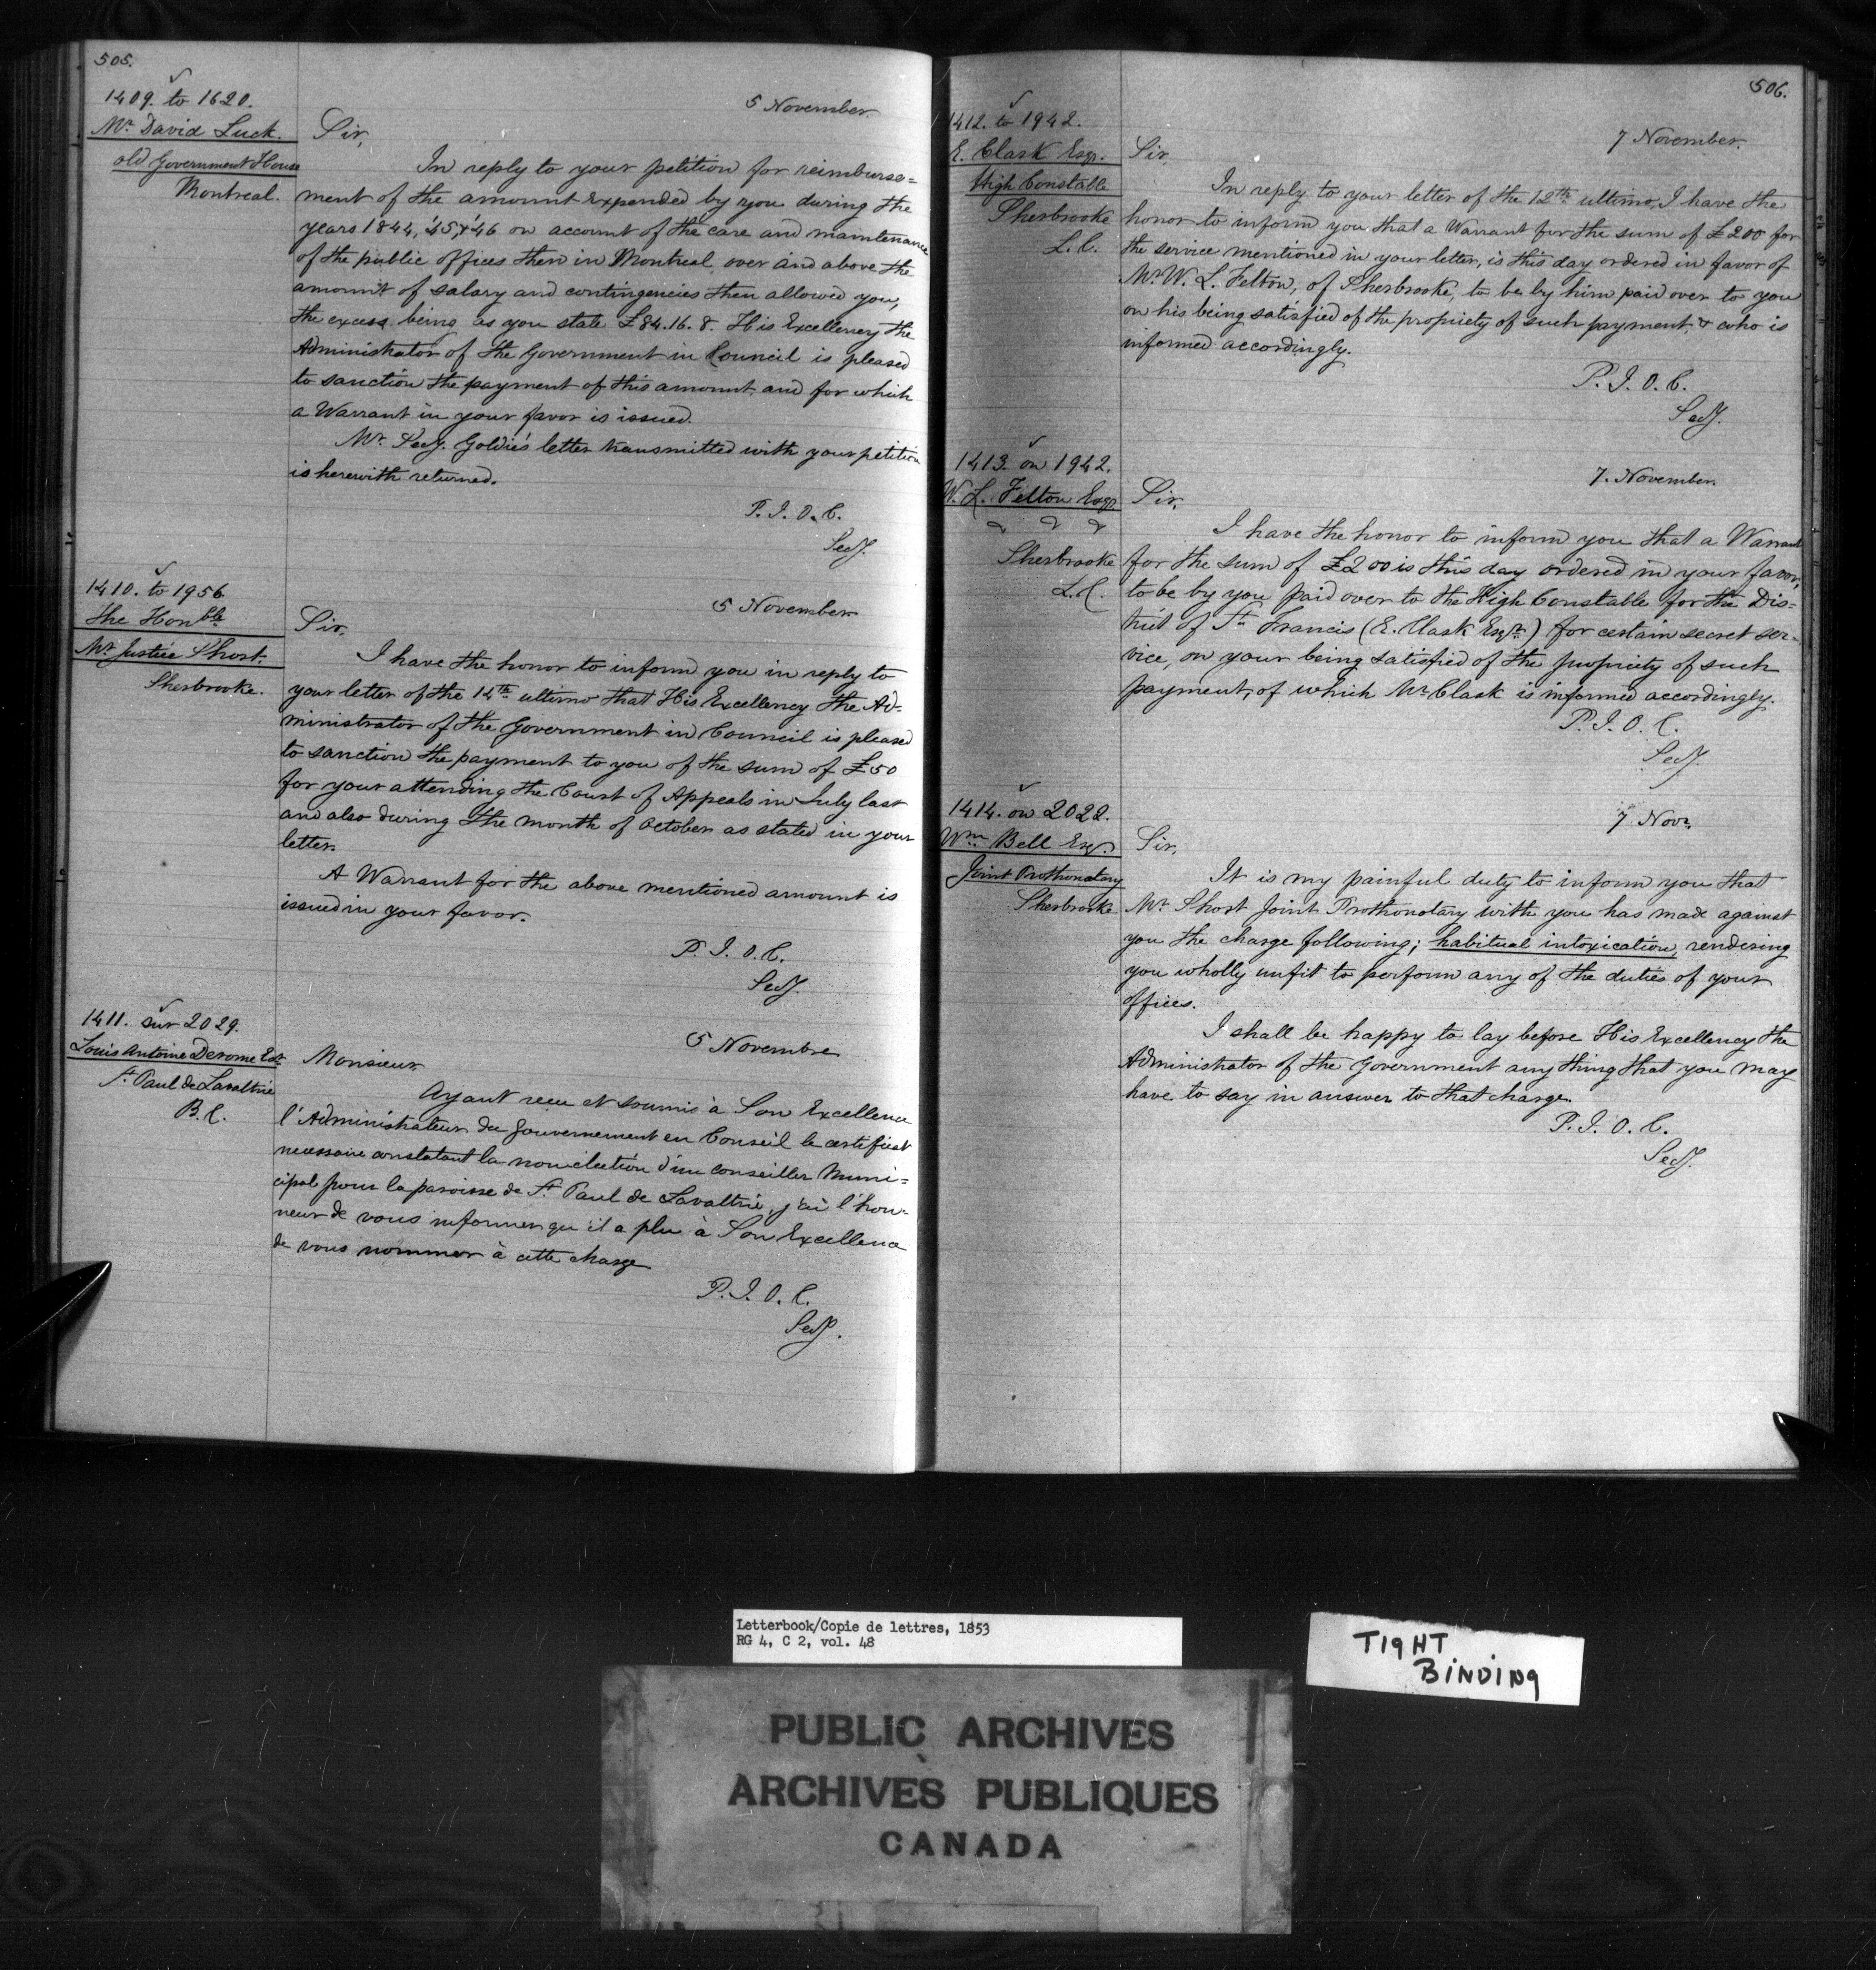 505.
1409. to 1620.
Mr. David Luck.
old Government House
Montreal.
5 November
Sir,
In reply to your petition for reimburse=
ment of the amount expended by you during the
years 1844, '45, & '46 on account of the care and maintenance
of the public offices then in Montreal, over and above the
amount of salary and contingencies then allowed you,
the excess being as you state £84.16.8. His Excellency the
Administrator of the Government in Council is pleased
to sanction the payment of this amount, and for which
a Warrant in your favor is issued.
Mr. Secy. Goldie's letter transmitted with your petition
is herewith returned.
P. J. O. C.
Secy.
1410. to 1956.
the Honble
Mr Justice Short.
Sherbrooke.
5 November
Sir,
I have the honor to inform you in reply to
your letter of the 14th ultimo that His Excellency the Ad-
ministrator of the Government in Council is pleased
to sanction the payment to you of the sum of £50
for your attending the Court of Appeals in July last
and also during the month of October as stated in your
letter.
A Warrant for the above mentioned amount is
issued in your favor.
P. J. O. C.
Secy.
1411. sur 2029.
Louis Antoine Derome Ecr
St Paul de Lavaltrie
B. C.
5 Novembre
Monsieur
Ayant recu et soumis à Son Excellence
l'Administrateur du Gouvernement en Conseil le certificat
necessaire constatant la non election d'un conseiller Muni=
cipal pour la paroisse de St. Paul de Lavaltrie, j'ai l'hon-
neur de vous informer qu'il a plu à Son Excellence
de vous nommer à cette charge
P. J. O. C.
Secy.
506.
1412. to 1942.
E. Clark Esqr.
High Constable
Sherbrooke
L. C.
7 November.
Sir,
In reply to your letter of the 12th ultimo, I have the
honor to inform you that a Warrant for the sum of £200 for
the service mentioned in your letter, is this day ordered in favor of
Mr W. L. Felton, of Sherbrooke, to be by him paid over to you
on his being satisfied of the propriety of such payment, & who is
informed accordingly.
P. J. O. C.
Secy.
1413. on 1942.
W. L. Felton Esqr
Sherbrooke
L. C.
7. November.
Sir,
I have the honor to inform you that a Warrant
for the sum of £200 is this day ordered in your favor,
to be by you paid over to the High Constable for the Dis=
trict of St Francis (E. Clark Esqr.) for certain secret ser-
vice, on your being satisfied of the propriety of such
payment, of which Mr Clark is informed accordingly.
P. J. O. C.
Secy.
1414. on 2022.
Wm Bell Esqr.
Joint Prothonotary
Sherbrooke
7. Novr.
Sir,
It is my painful duty to inform you that
Mr Short Joint Prothonotary with you has made against
you the charge following; habitual intoxication, rendering
you wholly unfit to perform any of the duties of your
offices.
I shall be happy to lay before His Excellency the
Administrator of the Government any thing that you may
have to say in answer to that charge.
P. J. O. C.
Secy.
Letterbook/Copie de lettres, 1853
RG 4, C 2, vol. 48
TIGHT
BINDING
PUBLIC ARCHIVES
ARCHIVES PUBLIQUES
CANADA